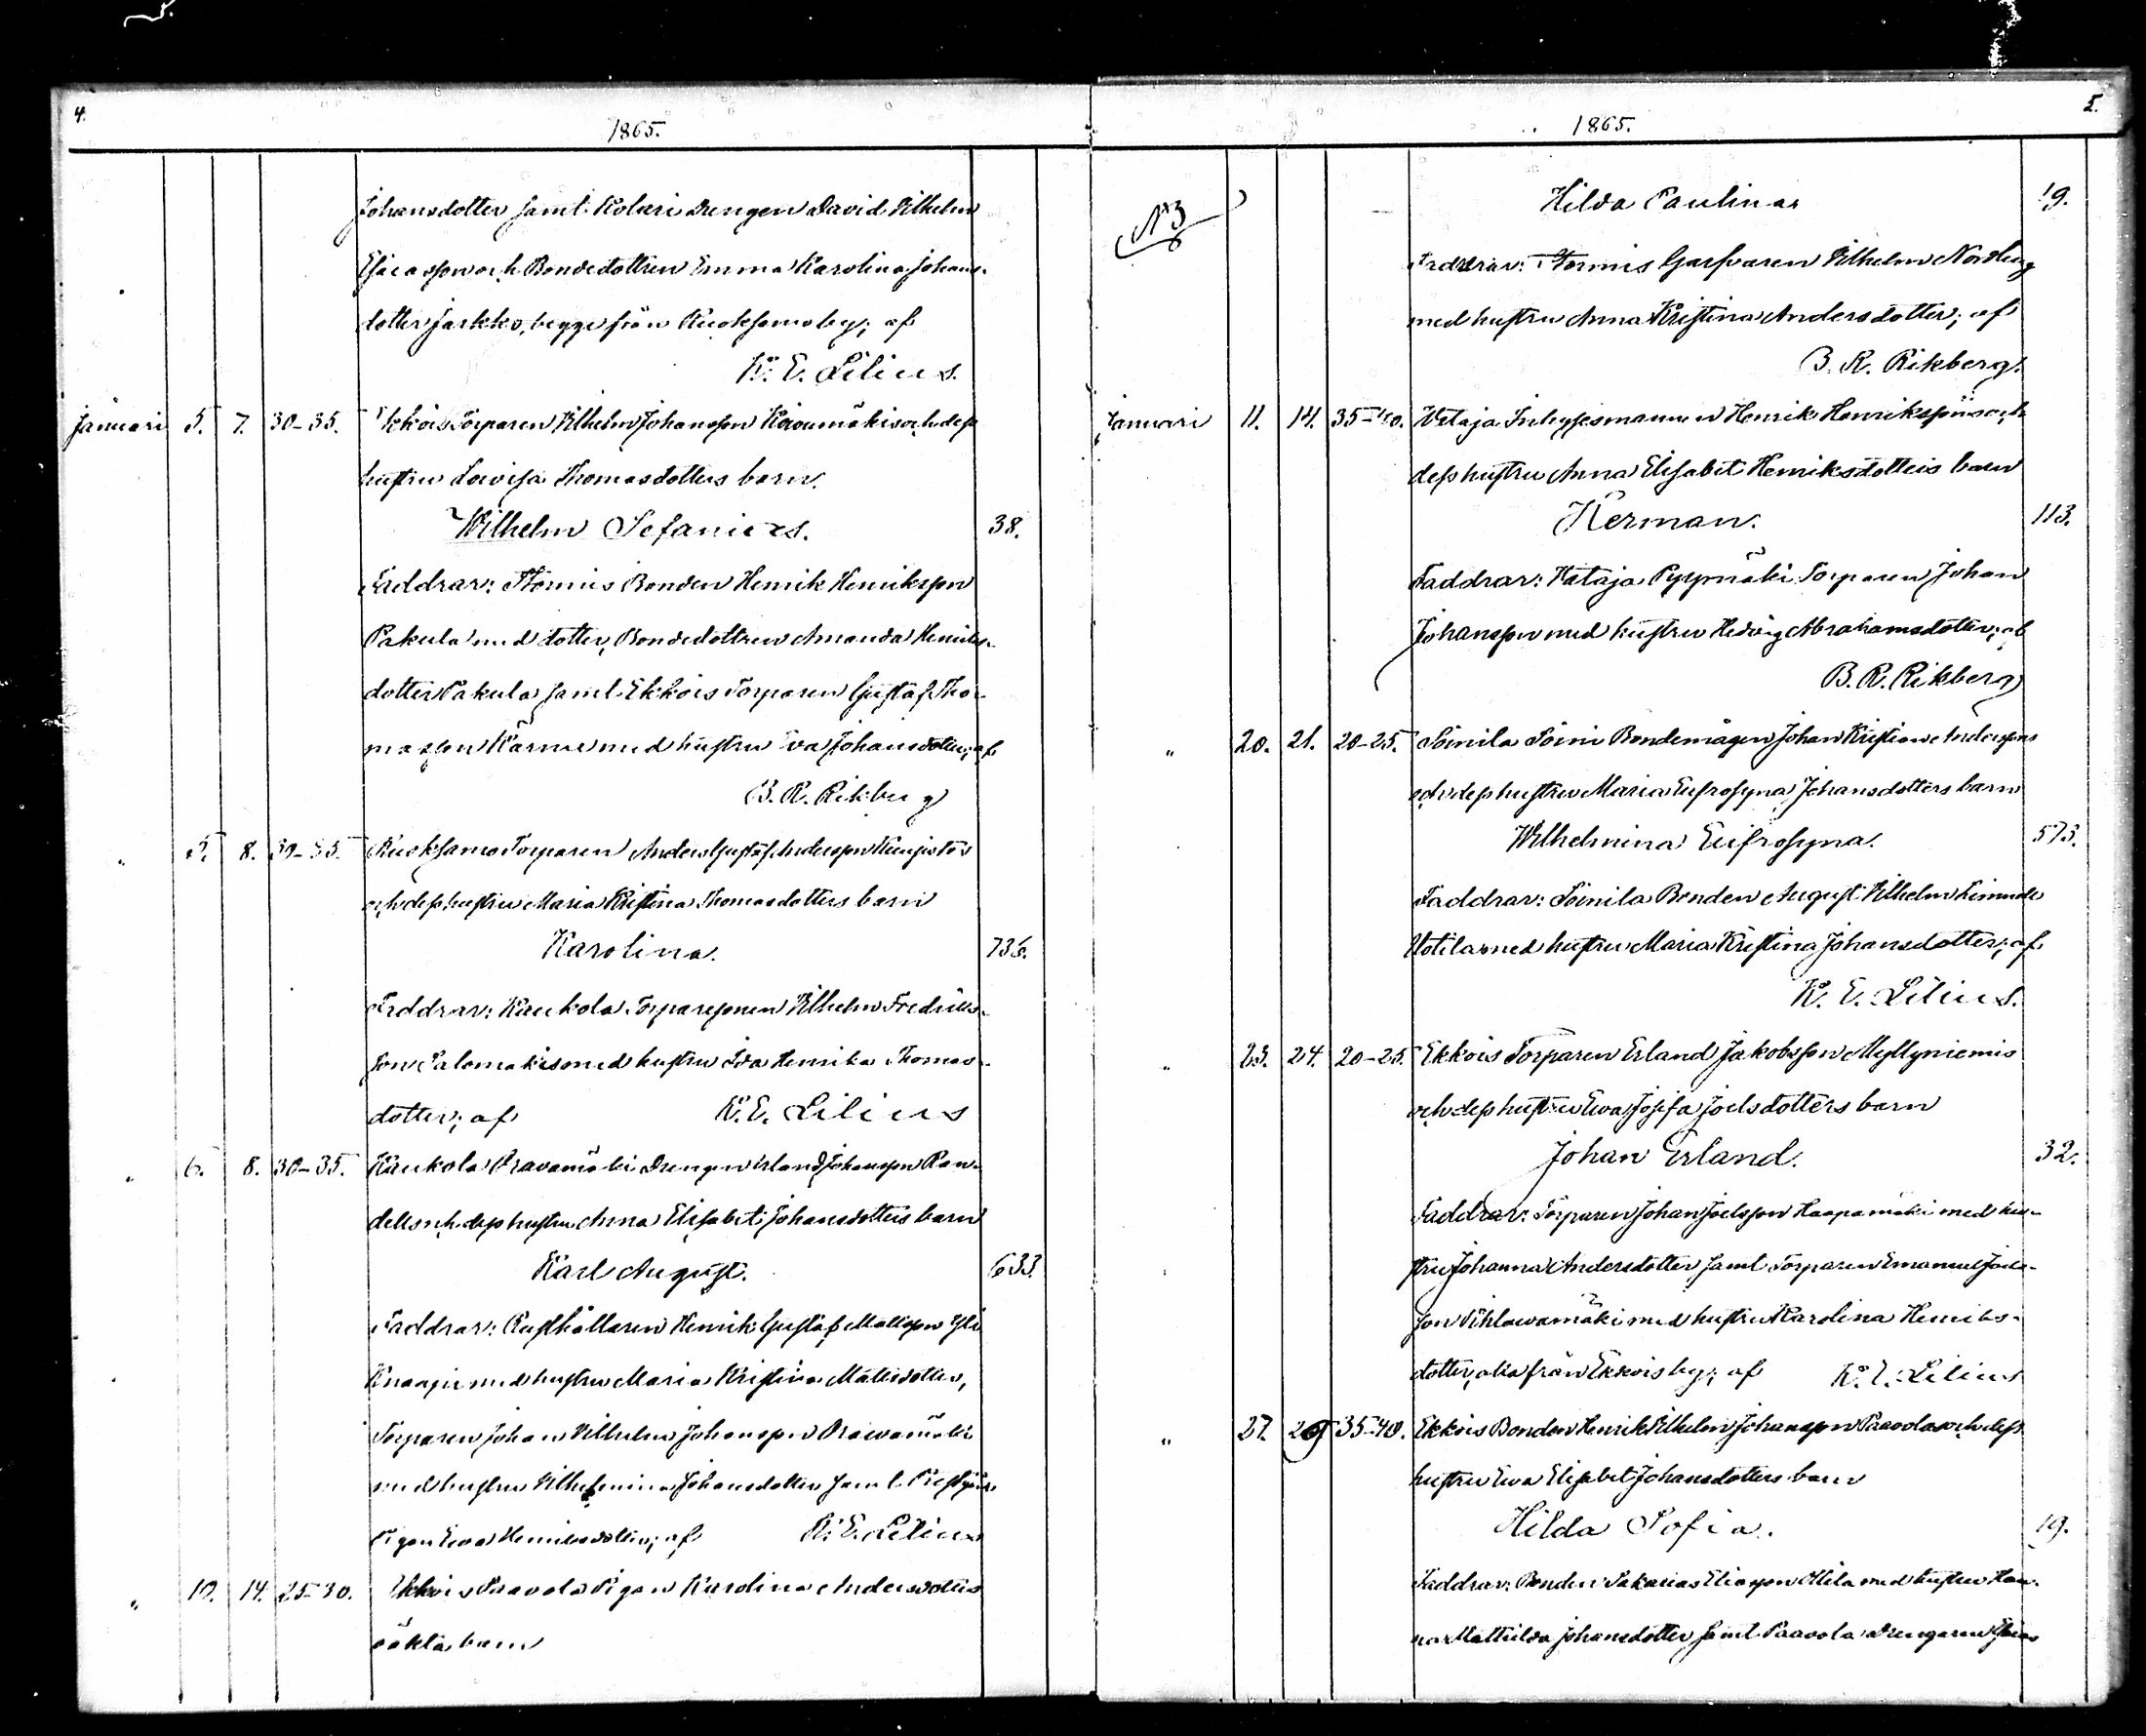 4.
1865.
Johansdotter samt Kolari Drengen David Wilhelm
Esaiasson och Bondedottren Emma Karolina Johans-
dotter Jarkko, begge från Ruoksamo by; af
K. E. Lilius.
Januari 5. 7. 30-35. Ekkois Torparen Wilhelm Johansson och dess
hustru Lovisa Thomasdotters barn.
Wilhelm Sefanias. 38.
Faddrar: Bonden Henrik Henriksson
Pakula med dotter, Bondedottren Amanda Henriks-
dotter Pakula samt Ekkois Torparen Gustaf Tho-
masson med hustru Eva Johansdotter; af
B. R. Rikberg
" 5. 8. 30-35. Ruoksamo Torparen Anders Gustaf Andersson
och dess hustru Maria Kristina Thomasdotters barn
Karolina. 736.
Faddrar: Kaukola Torparesonen Wilhelm Fredriks-
son med hustru Ida Henrika Thomas-
dotter; af K. E. Lilius
" 6. 8. 30-35. Kaukola Oravamäki Drengen Erland Johansson Ran-
dells och dess hustru Anna Elisabet Johansdotters barn
Karl August. 633.
Faddrar: Rusthållaren Henrik Gustaf Mattsson Yli
Knaapi med hustru Maria Kristina Mattsdotter,
Torparen Johan Wilhelm Johansson Oravamäki
med hustru Vilhelmina Johansdotter samt
Pigan Eva Henriksdotter; af K. E. Lilius
" 10. 14. 25-30. Ekkois Paavola Pigan Karolina Andersdotters
oäkta barn
5.
1865.
N 3
Hilda Paulina 19.
Faddrar: Garfvaren Wilhelm Nordberg
med hustru Anna Kristina Andersdotter; af
B. R. Rikberg.
Januari 11. 14. 35-40. Vataja Inhysesmannen Henrik Henrikssons och
dess hustru Anna Elisabet Henriksdotters barn
Herman. 113.
Faddrar: Vataja Pyymäki Torparen Johan
Johansson med hustru Hedvig Abrahamsdotter; af
B. R. Rikberg
" 20. 21. 20-25. Soinila Soini Bondemågen Johan Kristian Anderssons
och dess hustru Maria Eufrosyna Johansdotters barn
Wilhelmina Eufrosyna. 573.
Faddrar: Soinila Bonden August Wilhelm
Uotila med hustru Maria Kristina Johansdotter; af
K. E. Lilius.
" 23. 24. 20-25. Ekkois Torparen Erland Jakobsson Myllyniemis
och dess hustru Eva Josefa Joelsdotters barn
Johan Erland. 32.
Faddrar: Torparen Johan Joelsson Haapamäki med hu-
stru Johanna Andersdotter samt Torparen Emanuel Joels-
son med hustru Karolina Henriks-
dotter, alla från Ekkois by; af K. E. Lilius
" 27. 29 35-40. Ekkois Bonden Henrik Wilhelm Johansson Paavolas och dess
hustru Eva Elisabet Johansdotters barn
Hilda Sofia. 19.
Faddrar: Bonden Sakarias Eliasson Ollila med hustru Han-
na Mathilda Johansdotter samt Paavola Drengarne Esaias